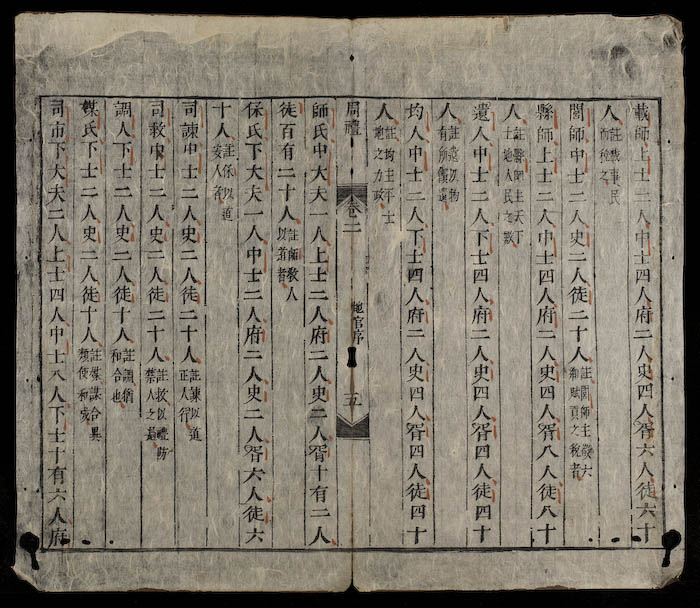 載師上士二人中士四人府二人史四人胥六人徒六十
人註載事民而稅之
閭師中士二人史二人徒二十人註閭師主徵六鄉賦貢之稅者
縣師上士二人中士四人府二人史四人胥八人徒八十
人註縣師主天下土地人民之數
遺人中士二人下士四人府二人史四人胥四人徒四十
人註遺以物有所饋遺
均人中士二人下士四人府二人史四人胥四人徒四十
人註均主平土地之力政
周禮 卷二 地官序 五
師氏中大夫一人上士二人府二人史二人胥十有二人
徒百有二十人註師教人以道者
保氏下大夫一人中士二人府二人史二人胥六人徒六
十人註保以道安人者
司諫中士二人史二人徒二十人註諫以道正人行
司救中士二人史二人徒二十人註救以禮防禁人之過
調人下士二人史二人徒十人註調猶和合也
媒氏下士二人史二人徒十人註媒謀合異類使和成
司市下大夫二人上士四人中士八人下士十有六人府